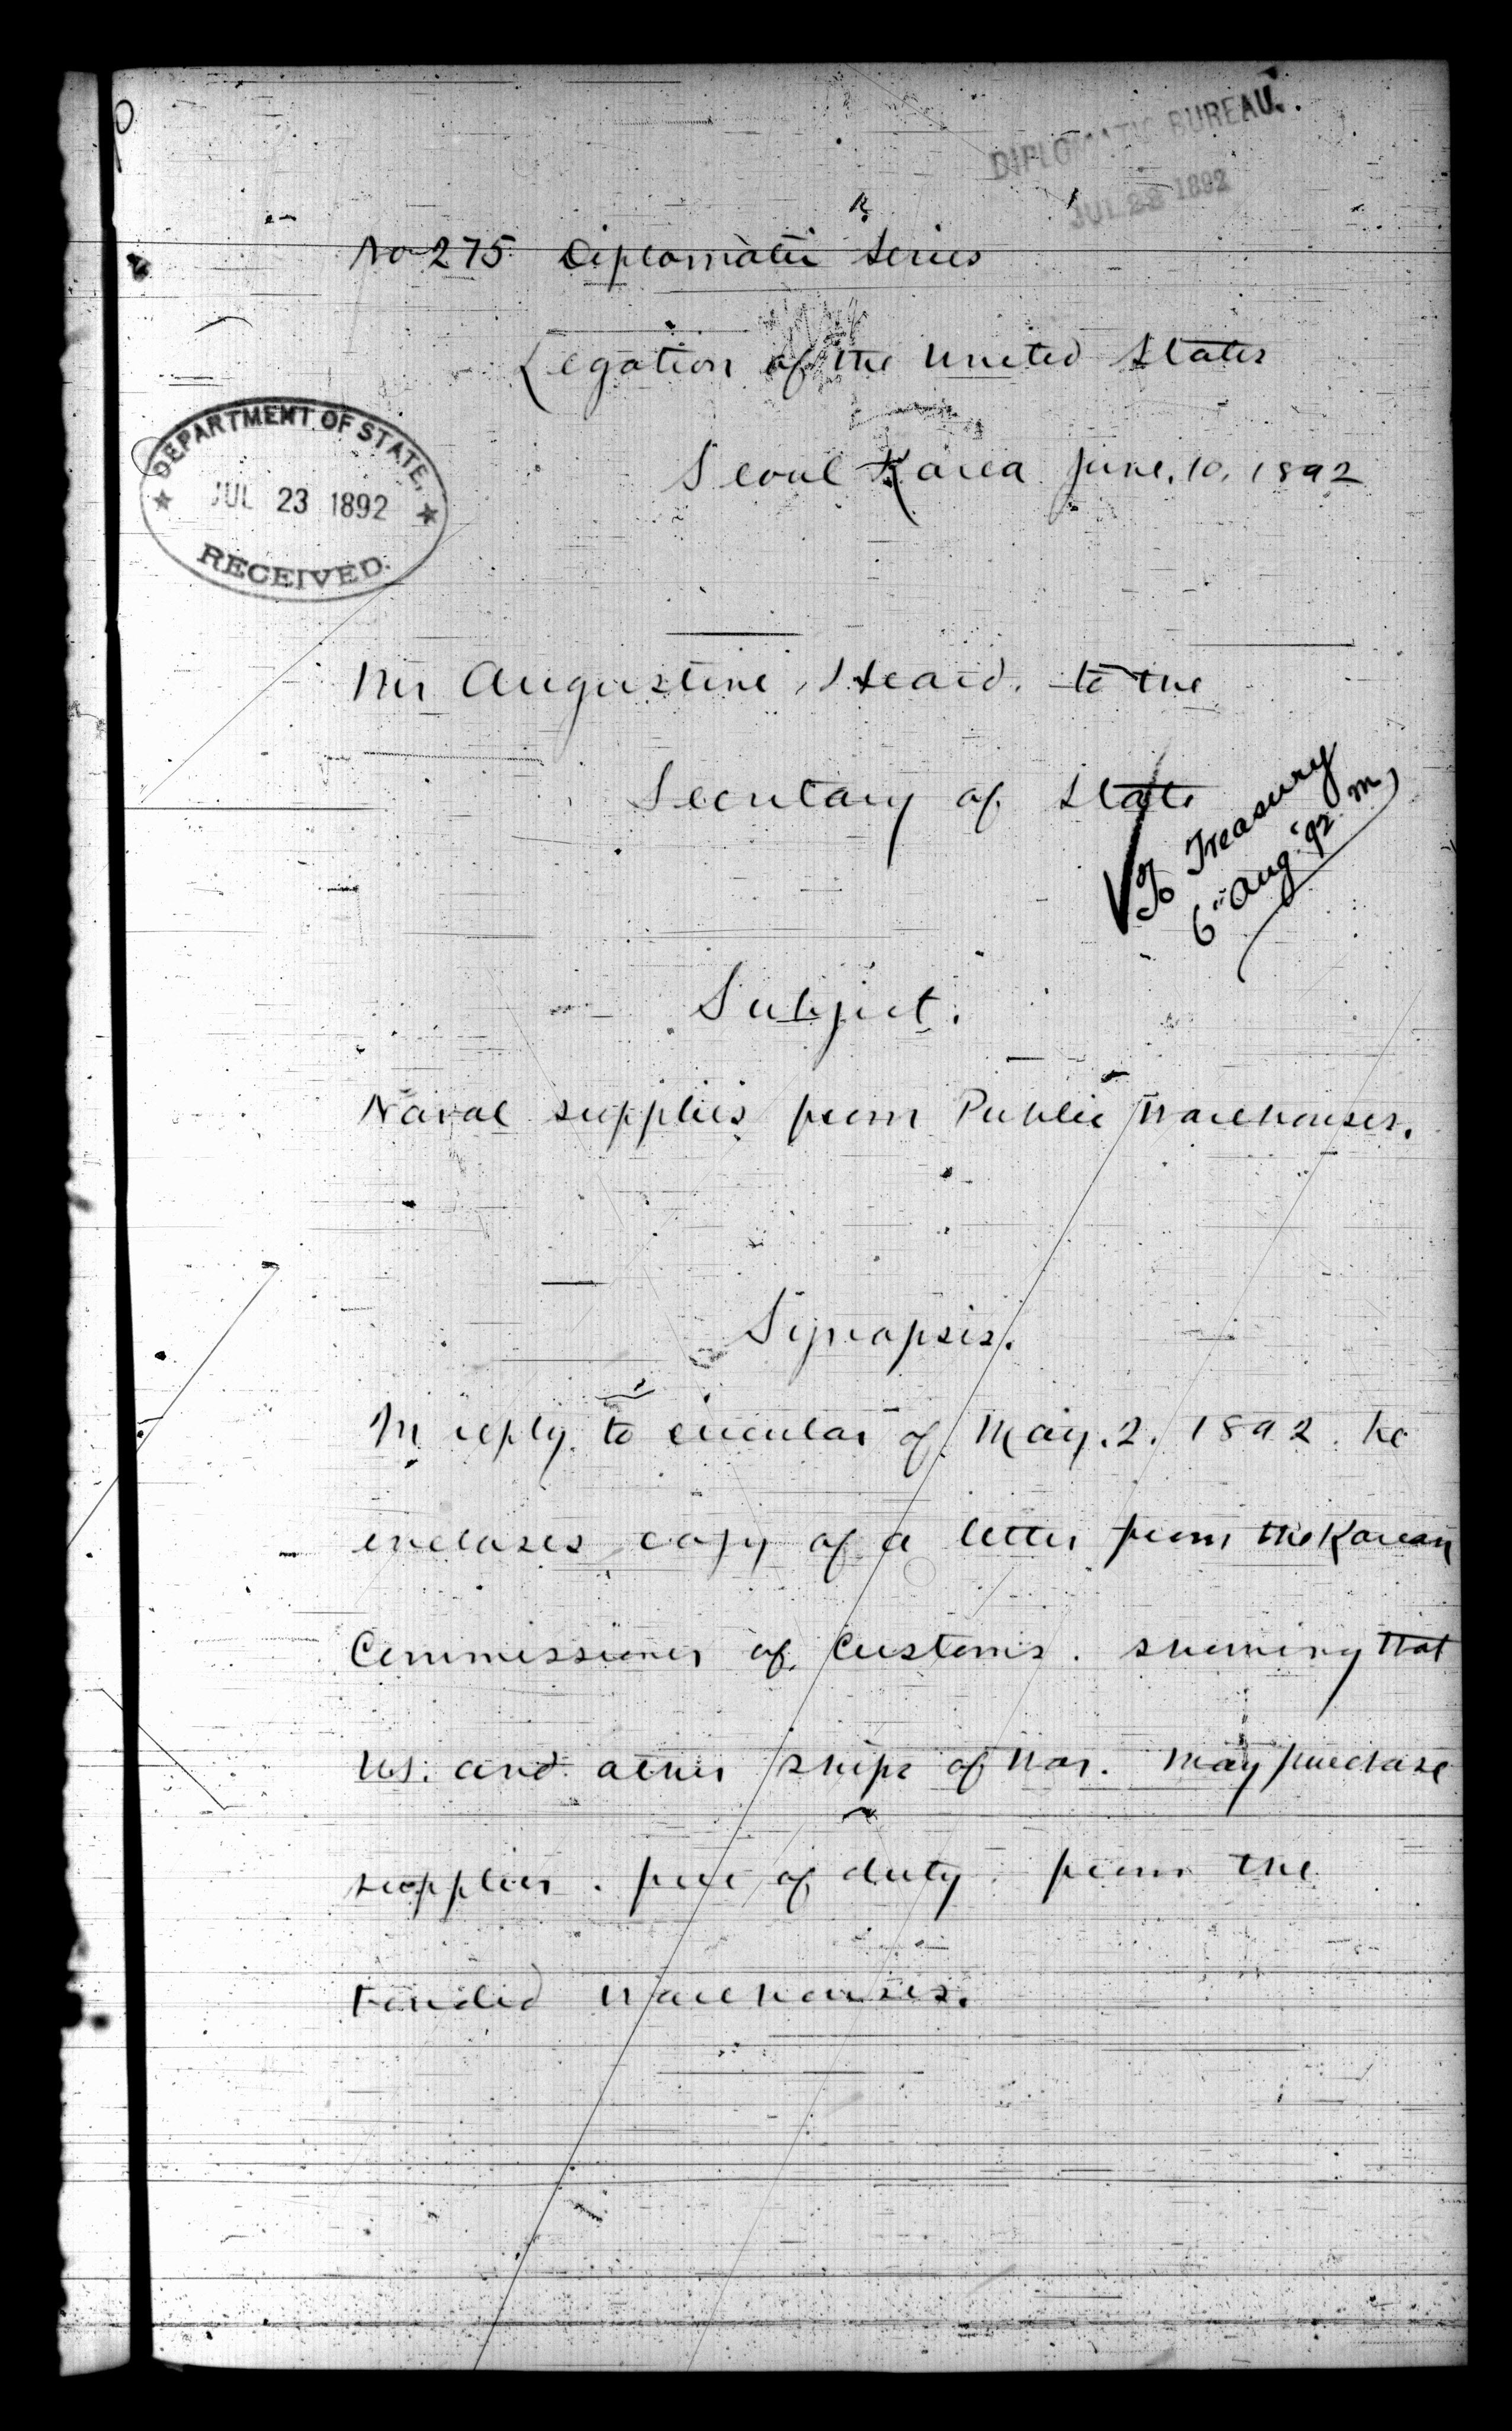 DIPLOMATIC BUREAU.
JUL 23 1892
No 275 Diplomatic Series
Legation of the United States
Seoul Korea June. 10. 1892
DEPARTMENT OF STATE,
JUL 23 1892
RECEIVED.
Mr Augustine Heard. to the
Secretary of State
To Treasury
6" Aug '92 M
Subject.
Naval supplies from Public Warehouses.
Synopsis.
In reply to circular of May. 2. 1892. he
encloses copy of a letter from the Korean
Commissioner of Customs. showing that
U.S. and other ships of War. may purchase
supplies. free of duty. from the
Warehouses.